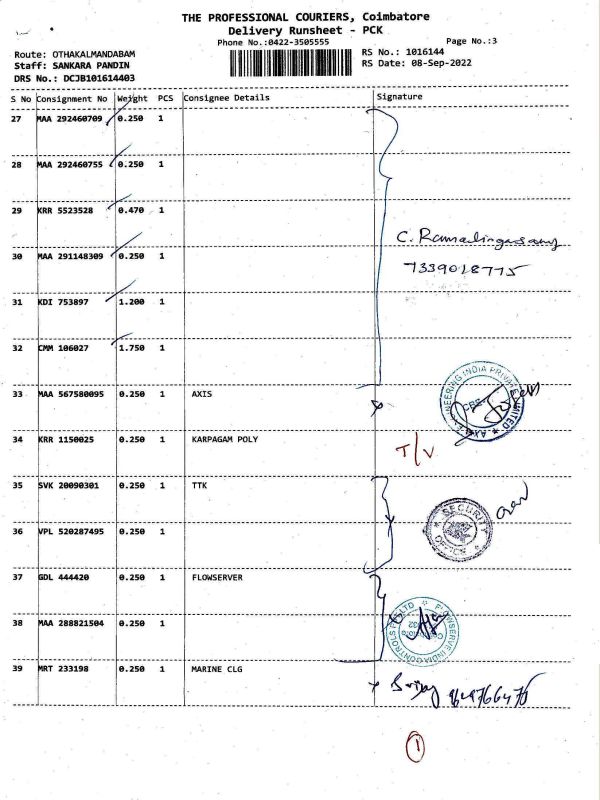 THE PROFESSIONAL COURIERS, Coimbatore
Delivery Runsheet - PCK
Phone No.:0422-3505555
Page No.:3
Route: OTHAKALMANDABAM
RS No.: 1016144
Staff: SANKARA PANDIN
RS Date: 08-Sep-2022
DRS No.: DCJB101614403
S No Consignment No Weight PCS Consignee Details Signature
27 MAA 292460709 0.250 1
28 MAA 292460755 0.250 1
29 KRR 5523528 0.470 1
C. Ramalingasamy
30 MAA 291148309 0.250 1
7339018775
31 KDI 753897 1.200 1
32 CMM 106027 1.750 1
33 MAA 567580095 0.250 1 AXIS
ENGINEERING INDIA PRIVATE LIMITED
34 KRR 1150025 0.250 1 KARPAGAM POLY
T/V
35 SVK 20090301 0.250 1 TTK
SECURITY OFFICE
36 VPL 520287495 0.250 1
37 GDL 444420 0.250 1 FLOWSERVER
38 MAA 288821504 0.250 1
FLOWSERVE INDIA CONTROLS PVT LTD
39 MRT 233198 0.250 1 MARINE CLG
1